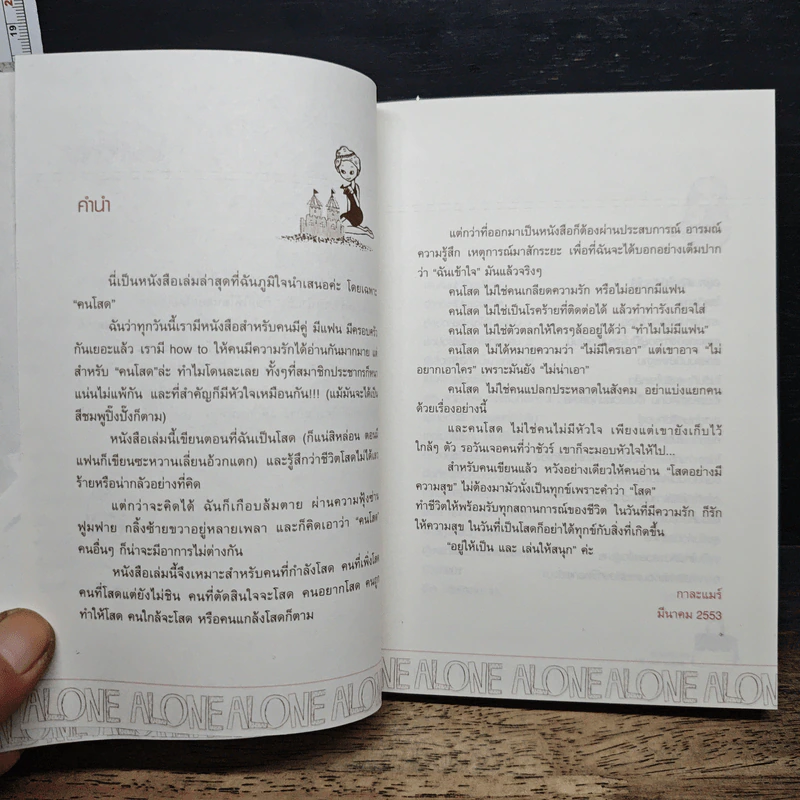 19
คำนำ
นี่เป็นหนังสือเล่มล่าสุดที่ฉันภูมิใจนำเสนอค่ะ โดยเฉพาะ
“คนโสด”
ฉันว่าทุกวันนี้เรามีหนังสือสำหรับคนมีคู่ มีแฟน มีครอบครัว
กันเยอะแล้ว เรามี how to ให้คนมีความรักได้อ่านกันมากมาย แต่
สำหรับ “คนโสด”ล่ะ ทำไมโดนละเลย ทั้งๆที่สมาชิกประชากรก็หนา
แน่นไม่แพ้กัน และที่สำคัญก็มีหัวใจเหมือนกัน!!! (แม้มันจะได้เป็น
สีชมพูปิ๊งปั๊งก็ตาม)
หนังสือเล่มนี้เขียนตอนที่ฉันเป็นโสด (ก็แน่สิหล่อน ตอนมี
แฟนก็เขียนซะหวานเลี่ยนอ้วกแตก) และรู้สึกว่าชีวิตโสดไม่ได้เลว
ร้ายหรือน่ากลัวอย่างที่คิด
แต่กว่าจะคิดได้ ฉันก็เกือบล้มตาย ผ่านความฟุ้งซ่าน
ฟูมฟาย กลิ้งซ้ายขวาอยู่หลายเพลา และก็คิดเอาว่า “คนโสด”
คนอื่นๆ ก็น่าจะมีอาการไม่ต่างกัน
หนังสือเล่มนี้จึงเหมาะสำหรับคนที่กำลังโสด คนที่เพิ่งโสด
คนที่โสดแต่ยังไม่ชิน คนที่ตัดสินใจจะโสด คนอยากโสด คนถูก
ทำให้โสด คนใกล้จะโสด หรือคนแกล้งโสดก็ตาม
ALONE ALONE ALONE ALO
แต่กว่าที่ออกมาเป็นหนังสือก็ต้องผ่านประสบการณ์ อารมณ์
ความรู้สึก เหตุการณ์มาสักระยะ เพื่อที่ฉันจะได้บอกอย่างเต็มปาก
ว่า “ฉันเข้าใจ” มันแล้วจริงๆ
คนโสด ไม่ใช่คนเกลียดความรัก หรือไม่อยากมีแฟน
คนโสด ไม่ใช่เป็นโรคร้ายที่ติดต่อได้ แล้วทำท่ารังเกียจใส่
คนโสด ไม่ใช่ตัวตลกให้ใครๆล้ออยู่ได้ว่า “ทำไมไม่มีแฟน”
คนโสด ไม่ได้หมายความว่า “ไม่มีใครเอา” แต่เขาอาจ “ไม่
อยากเอาใคร” เพราะมันยัง “ไม่น่าเอา”
คนโสด ไม่ใช่คนแปลกประหลาดในสังคม อย่าแบ่งแยกคน
ด้วยเรื่องอย่างนี้
และคนโสด ไม่ใช่คนไม่มีหัวใจ เพียงแต่เขายังเก็บไว้
ใกล้ๆ ตัว รอวันเจอคนที่ว่าชัวร์ เขาก็จะมอบหัวใจให้ไป...
สำหรับคนเขียนแล้ว หวังอย่างเดียวให้คนอ่าน “โสดอย่างมี
ความสุข” ไม่ต้องมามัวนั่งเป็นทุกข์เพราะคำว่า “โสด”
ทำชีวิตให้พร้อมรับทุกสถานการณ์ของชีวิต ในวันที่มีความรัก ก็รัก
ให้ความสุข ในวันที่เป็นโสดก็อย่าได้ทุกข์กับสิ่งที่เกิดขึ้น
“อยู่ให้เป็น และ เล่นให้สนุก” ค่ะ
กาละแมร์
มีนาคม 2553
NE ALONE ALONE ALONE ALON